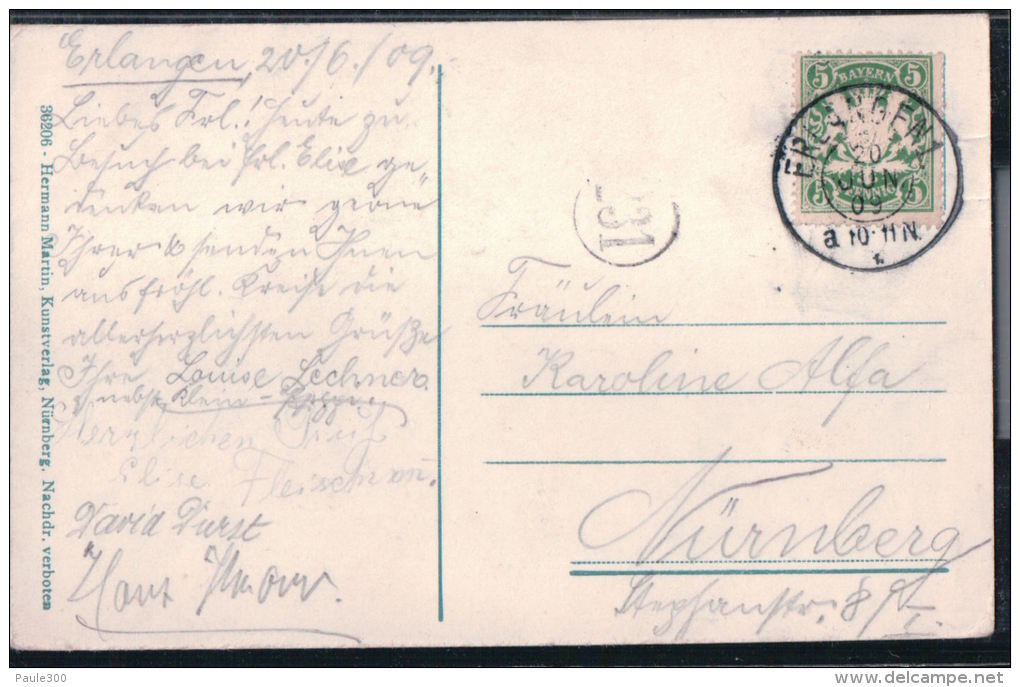 Erlangen, 20/6/09.
Liebes Frl.! Heute zu
Besuch bei Frl. Elise ge-
denken wir gerne
Ihrer & senden Ihnen
aus fröhl. Kreise die
allerherzlichsten Grüße
Ihre Louise Lechner
nebst Klein-
Herzlichen Gruß
Elise Fleischmann.
David Durst
Hans
36206 - Hermann Martin, Kunstverlag, Nürnberg. Nachdr. verboten
5 BAYERN 5
5 PFENNIG 5
ERLANGEN 1
20
JUN
09
a 10-11 N.
231
Fräulein
Karoline Alfa
Nürnberg
Stephanstr. 8/I
Paule300
delcampe.net